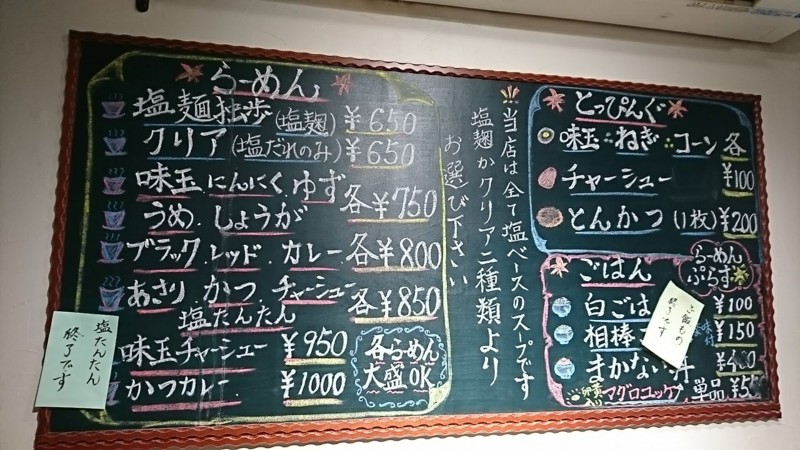 らーめん
塩麺独歩(塩麹) ¥650
クリア(塩だれのみ) ¥650
味玉 にんにく ゆず
うめ.しょうが 各¥750
ブラック.レッド.カレー 各¥800
あさり.かつ.チャーシュー 各¥850
塩たんたん
味玉チャーシュー ¥950
かつカレー ¥1000
各らーめん
大盛OK
塩たんたん
終了です
当店は全て塩ベースのスープです
塩麹かクリア二種類より
お選び下さい
とっぴんぐ
味玉 ねぎ コーン 各
¥100
チャーシュー
とんかつ(1枚) ¥200
らーめん
ぷらす
ごはん
白ごは ¥100
相棒 味付 ¥150
まかない丼
マグロユッケ 単品
ご飯もの
終了です